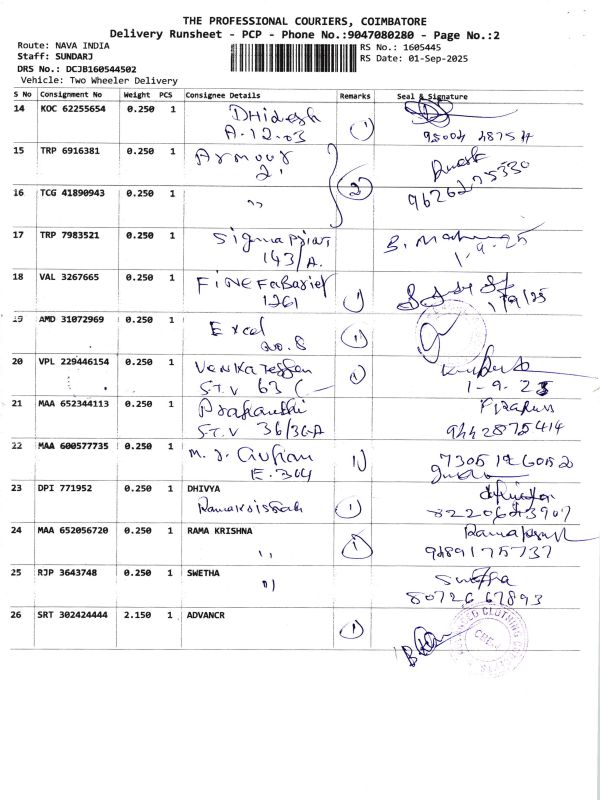 THE PROFESSIONAL COURIERS, COIMBATORE
Delivery Runsheet - PCP - Phone No.:9047080280 - Page No.:2
Route: NAVA INDIA
RS No.: 1605445
Staff: SUNDARJ
RS Date: 01-Sep-2025
DRS No.: DCJB160544502
Vehicle: Two Wheeler Delivery
S No Consignment No Weight PCS Consignee Details Remarks Seal & Signature
14 KOC 62255654 0.250 1
A.12.03 1
15 TRP 6916381 0.250 1 Armour
2
9626275330
16 TCG 41890943 0.250 1 " 2
17 TRP 7983521 0.250 1 Sigma
143/A. 1-9-25
18 VAL 3267665 0.250 1
1261 1 1/9/25
19 AMD 31072969 0.250 1 Excel
no.8 1
20 VPL 229446154 0.250 1
S.T.V 63 1 1-9-25
21 MAA 652344113 0.250 1
S.T.V 36/36-A 9442875414
22 MAA 600577735 0.250 1 M.J.
E.304 1 7305126052
23 DPI 771952 0.250 1 DHIVYA
1 8220643907
24 MAA 652056720 0.250 1 RAMA KRISHNA
" 1 9489175737
25 RJP 3643748 0.250 1 SWETHA Swetha
" 8072667893
26 SRT 302424444 2.150 1 ADVANCR
1